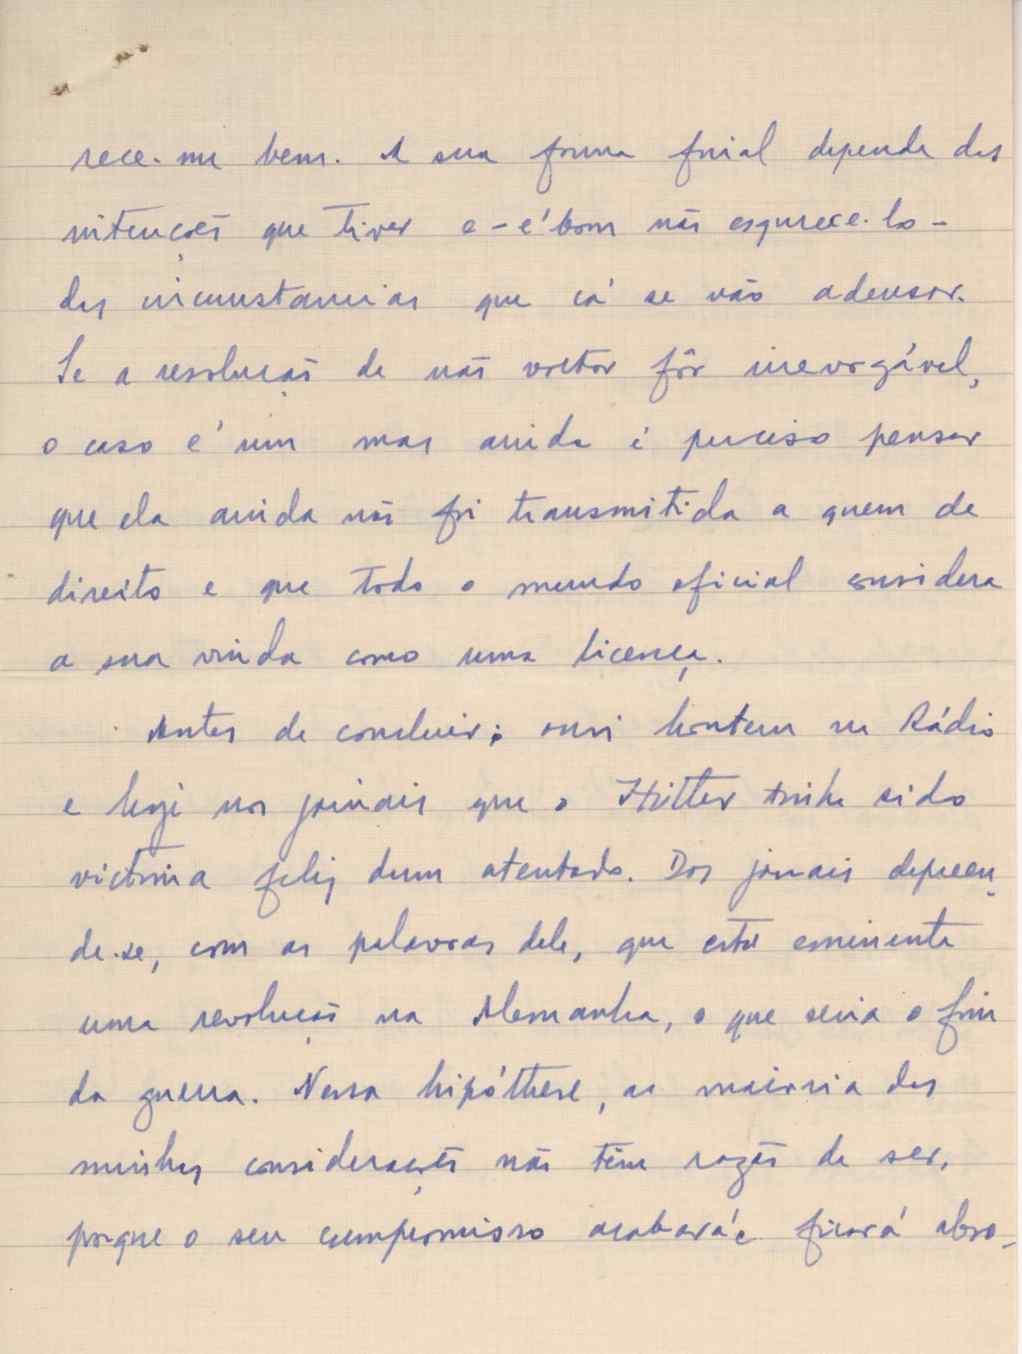 rece-me bem. A sua forma final depende das
intenções que tiver e - é bom não esquece-lo -
das circunstancias que cá se vão adensar.
Se a resolução de não voltar fôr irrevogável,
o caso é um mas ainda é preciso pensar
que ela ainda não foi transmitida a quem de
direito e que todo o mundo oficial considera
a sua vinda como uma licença.
Antes de concluir: ouvi hontem na Rádio
e hoje nos jornais que o Hitler tinha sido
victima feliz dum atentado. Dos jornais depreen-
de-se, com as palavras dele, que está eminente
uma revolução na Alemanha, o que seria o fim
da guerra. Nessa hipóthese, a maioria das
minhas considerações não têm razão de ser,
porque o seu compromisso acabará e ficará abso-